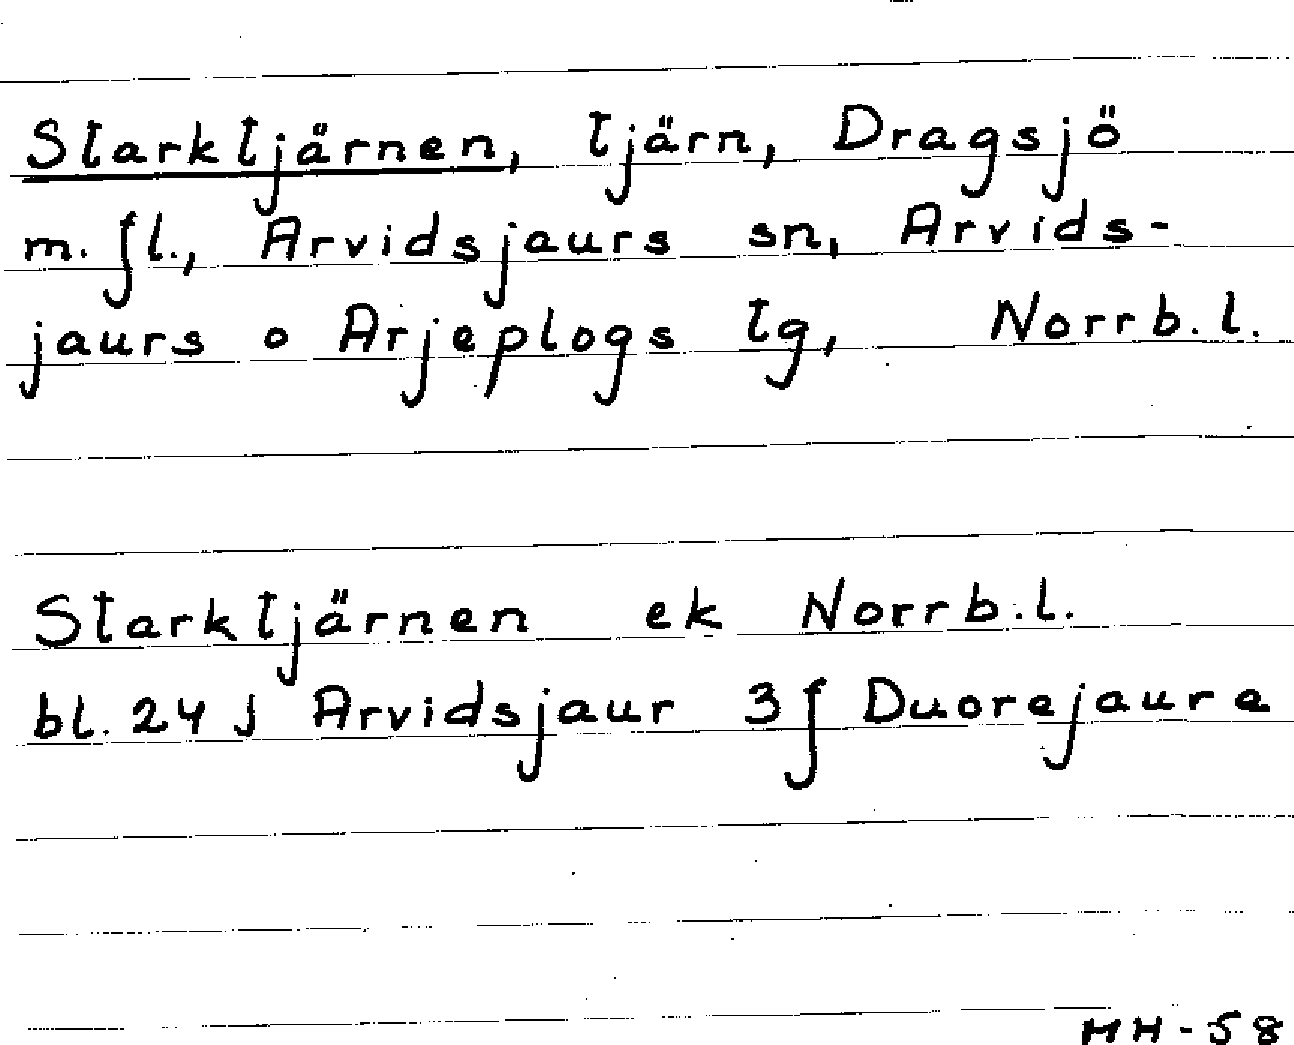 Starktjärnen, tjärn, Dragsjö
m. fl., Arvidsjaurs sn, Arvids-
jaurs o Arjeplogs tg, Norrb. l.
Starktjärnen ek Norrb. l.
bl. 24 J Arvidsjaur 3 f Duorejaure
HH - 58